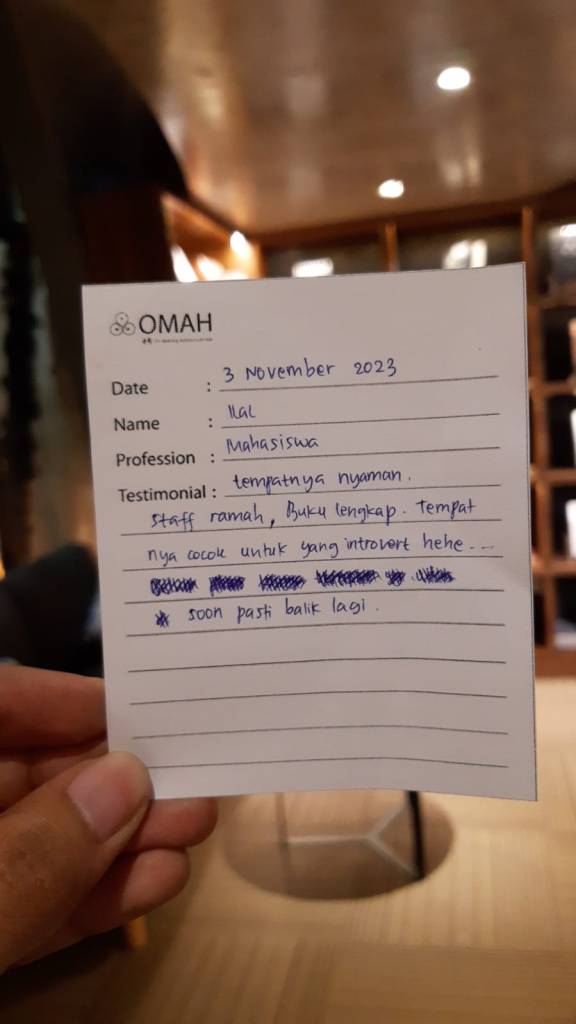 OMAH
Date : 3 November 2023
Name : Ilal
Profession : Mahasiswa
Testimonial : tempatnya nyaman.
Staff ramah, Buku lengkap. Tempat
nya cocok untuk yang introvert hehe...
soon pasti balik lagi.